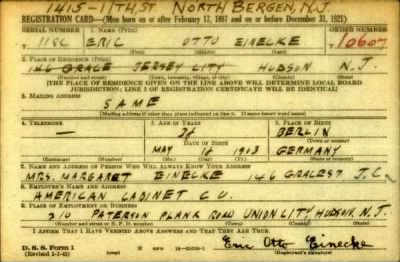 1415-11TH.ST NORTH BERGEN, N.J.
REGISTRATION CARD—(Men born on or after February 17, 1897 and on or before December 31, 1921)
SERIAL NUMBER 1. NAME (Print) ORDER NUMBER
1186 ERIC OTTO EINECKE 10607
(First) (Middle) (Last)
2. PLACE OF RESIDENCE (Print)
146 GRACE JERSEY CITY HUDSON N.J.
(Number and street) (Town, township, village, or city) (County) (State)
[THE PLACE OF RESIDENCE GIVEN ON THE LINE ABOVE WILL DETERMINE LOCAL BOARD
JURISDICTION; LINE 2 OF REGISTRATION CERTIFICATE WILL BE IDENTICAL]
3. MAILING ADDRESS
SAME
(Mailing address if other than place indicated on line 2. If same insert word same)
4. TELEPHONE 5. AGE IN YEARS 6. PLACE OF BIRTH
— 38 BERLIN
DATE OF BIRTH (Town or county)
MAY 1903 GERMANY
(Exchange) (Number) (Mo.) (Day) (Yr.) (State or country)
7. NAME AND ADDRESS OF PERSON WHO WILL ALWAYS KNOW YOUR ADDRESS
MRS. MARGARET EINECKE 146 GRACE ST J.C.
8. EMPLOYER'S NAME AND ADDRESS
AMERICAN CABINET CO.
9. PLACE OF EMPLOYMENT OR BUSINESS
210 PATERSON PLANK ROAD UNION CITY HUDSON, N.J.
(Number and street or R. F. D. number) (Town) (County) (State)
I AFFIRM THAT I HAVE VERIFIED ABOVE ANSWERS AND THAT THEY ARE TRUE.
D. S. S. Form 1
(Revised 1-1-42) Eric Otto Einecke
(Registrant's signature)